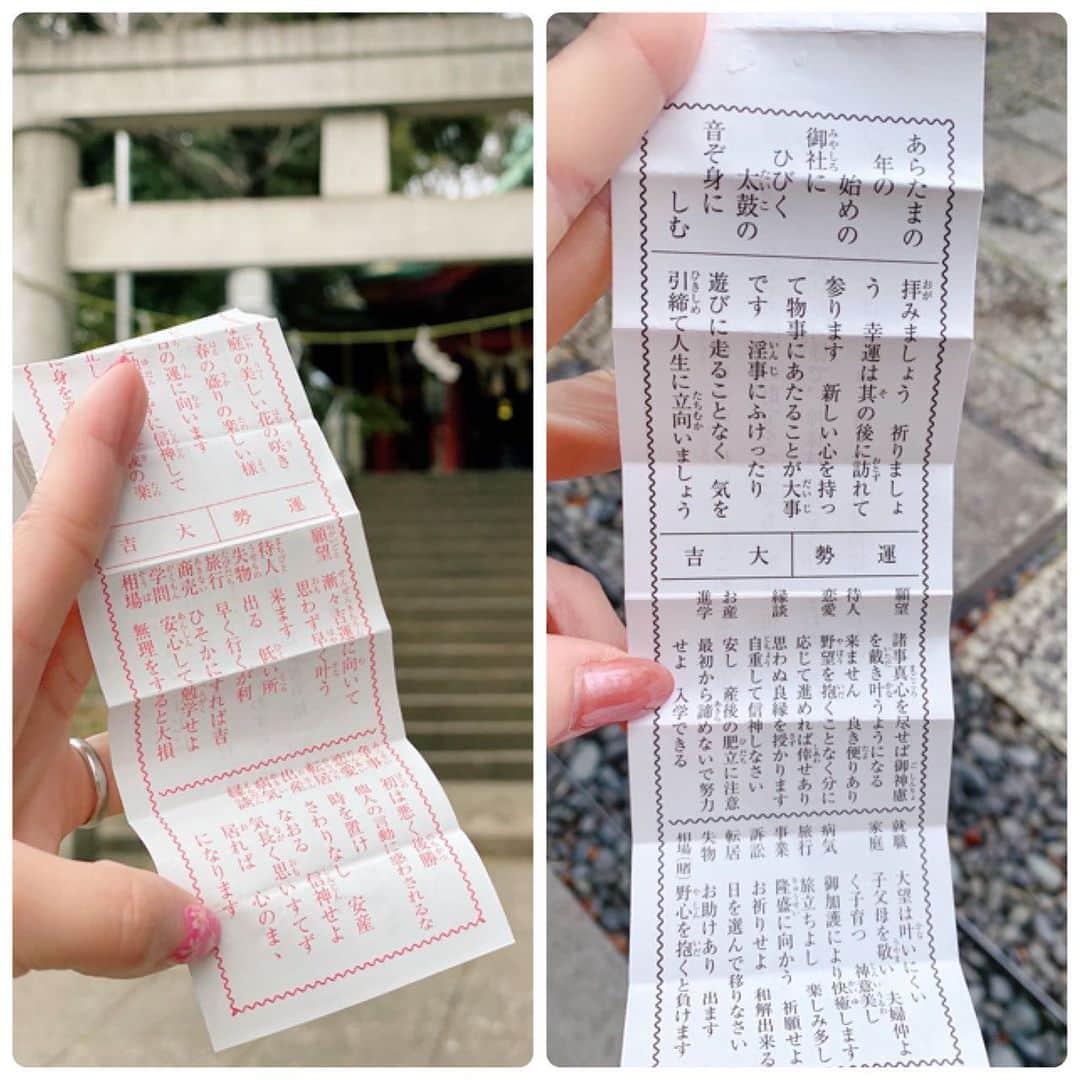 な庭の美しい花の咲き
春の盛りの楽しい様
吉の運に向います
に信神して
の楽
に身を
運勢 大吉
願望 漸々吉運に向いて
思わず早く叶う
待人 来ます
失物 出る 低い所
旅行 早く行くが利
商売 ひそかにすれば吉
学問 安心して勉学せよ
相場 無理をすると大損
初は悪く後勝
他人の言動に惑わされるな
転居 時を置け
出産 さわりなし 安産
病気 なおる 信神せよ
縁談 気長く思いすてず
居れば 心のまゝ
になります
あらたまの
年の
始めの
御社に
ひびく
太鼓の
音ぞ身に
しむ
拝みましょう 祈りましょ
う 幸運は其の後に訪れて
参ります 新しい心を持っ
て物事にあたることが大事
です 淫事にふけったり
遊びに走ることなく 気を
引締て人生に立向いましょう
運勢 大吉
願望 諸事真心を尽せば御神慮
を戴き叶うようになる
待人 来ません 良き便りあり
恋愛 野望を抱くことなく分に
応じて進めれば倖せあり
縁談 思わぬ良縁を授かります
自重して信神しなさい
お産 安し 産後の肥立に注意
進学 最初から諦めないで努力
せよ 入学できる
就職 大望は叶いにくい
家庭 子父母を敬い 夫婦仲よ
く子育つ 神意美し
病気 御加護により快癒します
旅行 旅立ちよし 楽しみ多し
事業 隆盛に向かう 祈願せよ
訴訟 お祈りせよ 和解出来る
転居 日を選んで移りなさい
失物 お助けあり 出ます
相場(賭) 野心を抱くと負けます